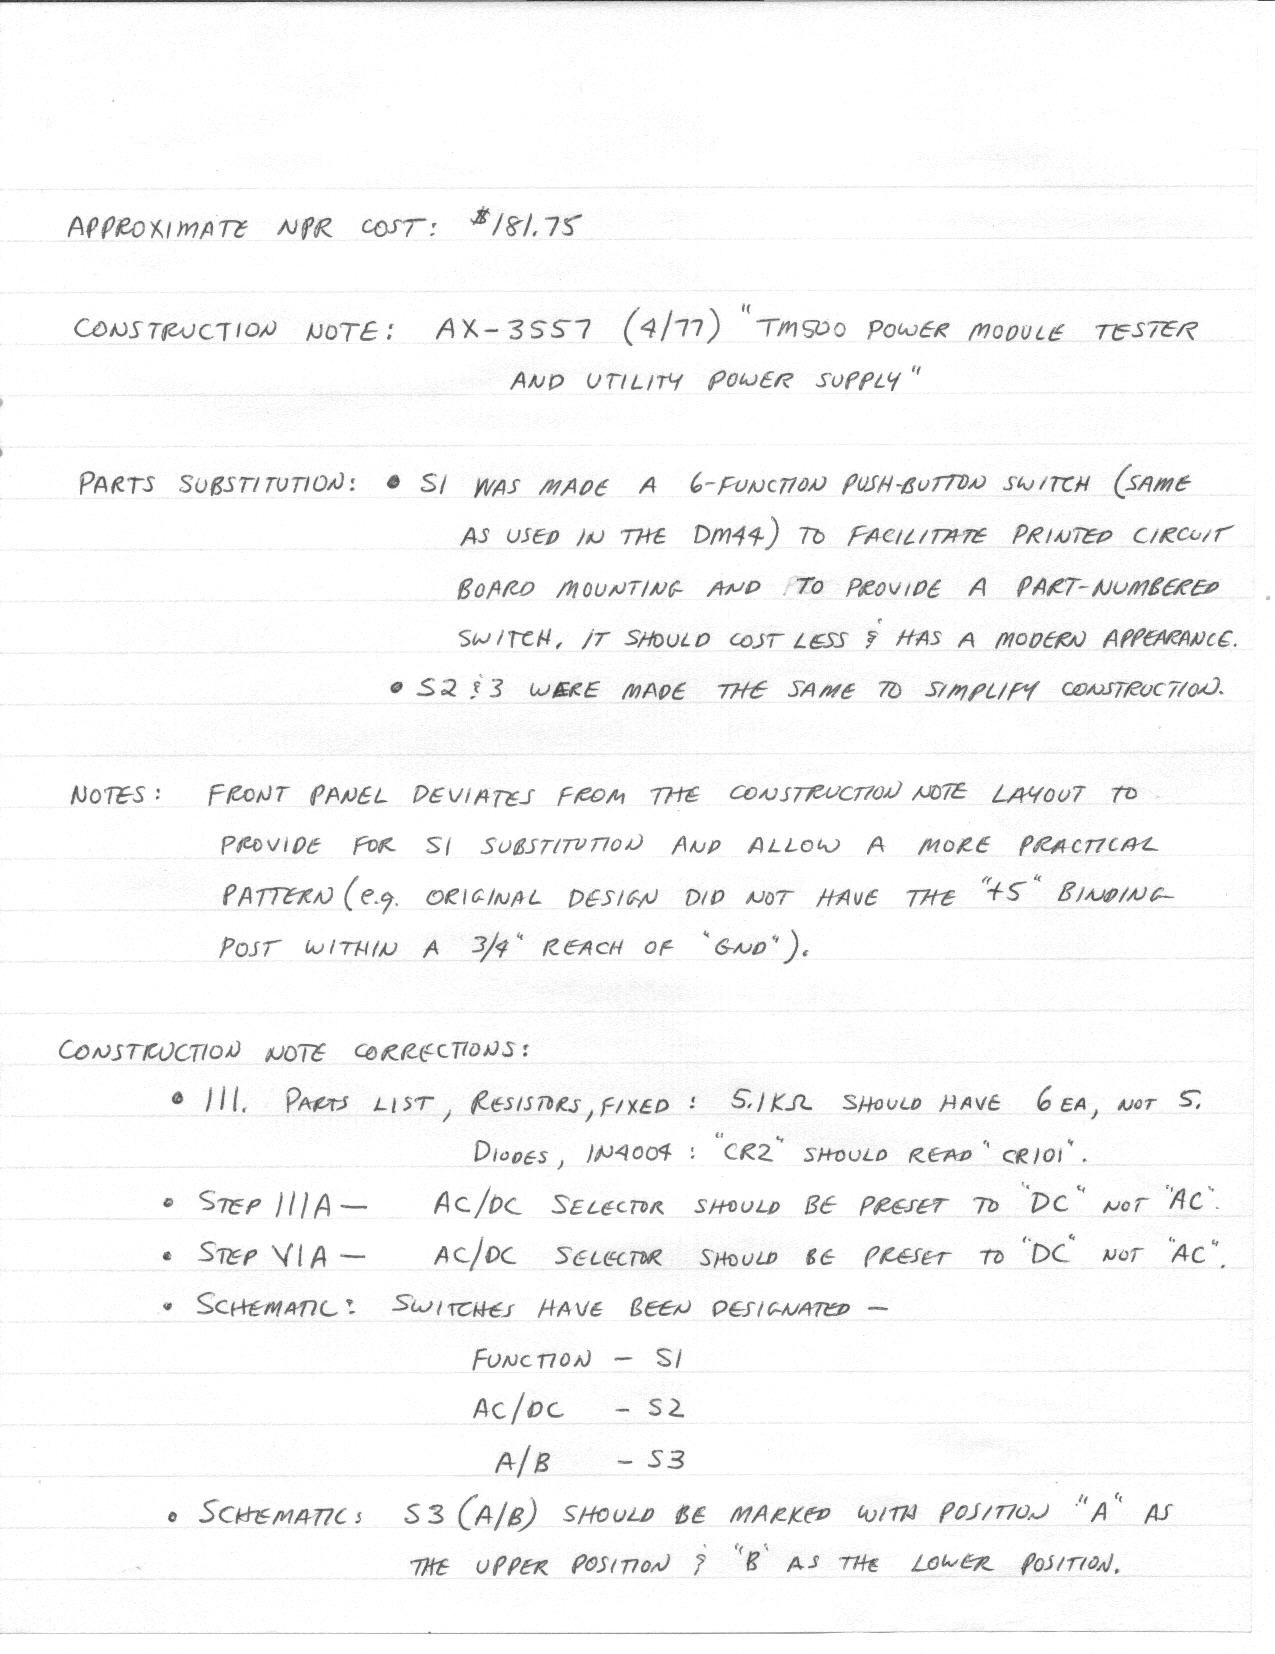 APPROXIMATE NPR COST: $181.75
CONSTRUCTION NOTE: AX-3557 (4/77) "TM500 POWER MODULE TESTER
AND UTILITY POWER SUPPLY"
PARTS SUBSTITUTION: • S1 WAS MADE A 6-FUNCTION PUSH-BUTTON SWITCH (SAME
AS USED IN THE DM44) TO FACILITATE PRINTED CIRCUIT
BOARD MOUNTING AND TO PROVIDE A PART-NUMBERED
SWITCH. IT SHOULD COST LESS & HAS A MODERN APPEARANCE.
• S2 & 3 WERE MADE THE SAME TO SIMPLIFY CONSTRUCTION.
NOTES: FRONT PANEL DEVIATES FROM THE CONSTRUCTION NOTE LAYOUT TO
PROVIDE FOR S1 SUBSTITUTION AND ALLOW A MORE PRACTICAL
PATTERN (e.g. ORIGINAL DESIGN DID NOT HAVE THE "+5" BINDING
POST WITHIN A 3/4" REACH OF "GND").
CONSTRUCTION NOTE CORRECTIONS:
• III. PARTS LIST, RESISTORS, FIXED: 5.1KΩ SHOULD HAVE 6 EA, NOT 5.
DIODES, 1N4004: "CR2" SHOULD READ "CR101".
• STEP IIIA — AC/DC SELECTOR SHOULD BE PRESET TO "DC" NOT "AC".
• STEP VIA — AC/DC SELECTOR SHOULD BE PRESET TO "DC" NOT "AC".
• SCHEMATIC: SWITCHES HAVE BEEN DESIGNATED —
FUNCTION — S1
AC/DC — S2
A/B — S3
• SCHEMATIC: S3 (A/B) SHOULD BE MARKED WITH POSITION "A" AS
THE UPPER POSITION & "B" AS THE LOWER POSITION.